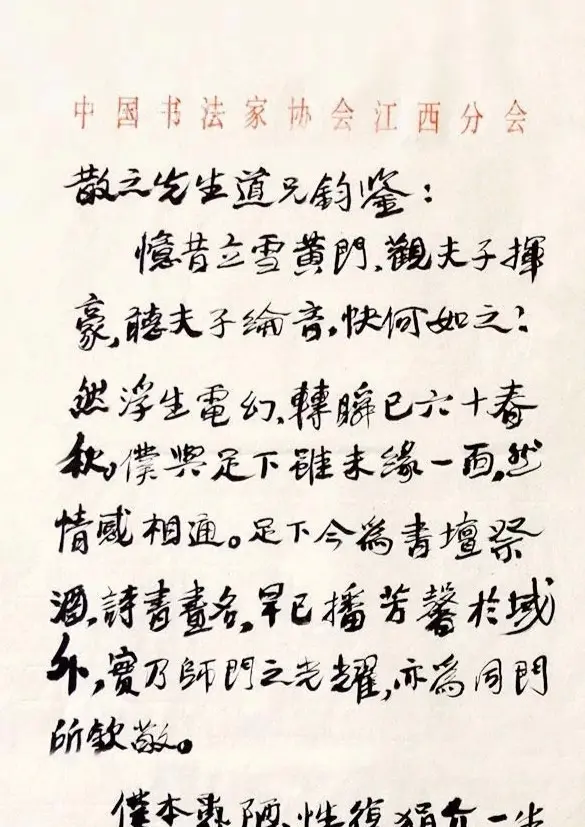 中国书法家协会江西分会
散之先生道兄鈞鉴：
憶昔立雪黄門，觀夫子揮
豪，聽夫子綸音，快何如之？
然浮生電幻，轉瞬已六十春
秋。僕與足下雖未緣一面，然
情感相通。足下今為書壇祭
酒，詩書畫名，早已播芳馨於域
外，實乃師門之光耀，亦為同門
所欽敬。
僕本愚陋，性復狷介，一生